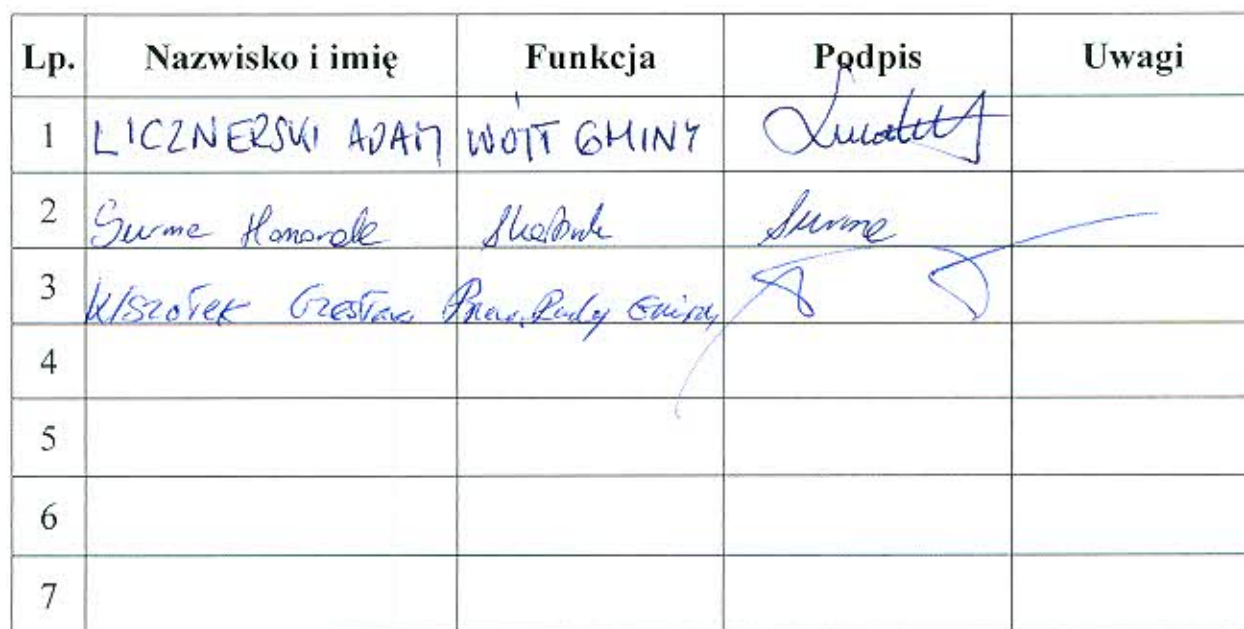 Lp. Nazwisko i imię Funkcja Podpis Uwagi
1 LICZNERSKI ADAM WÓJT GMINY
2 Surma Honorata Skarbnik Surma
3 Czesław Przew. Rady Gminy
4
5
6
7